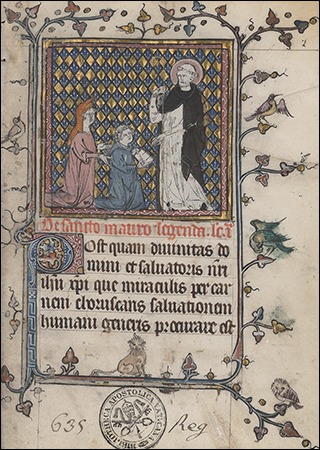 De sancto mauro. legenda.
Post quam diuinitas do
mini et saluatoris nri
ihu xpi que miraculis per car
nem choruscans saluationem
humani generis procurare est
BIBLIOTHECA APOSTOLICA VATICANA
635 Reg